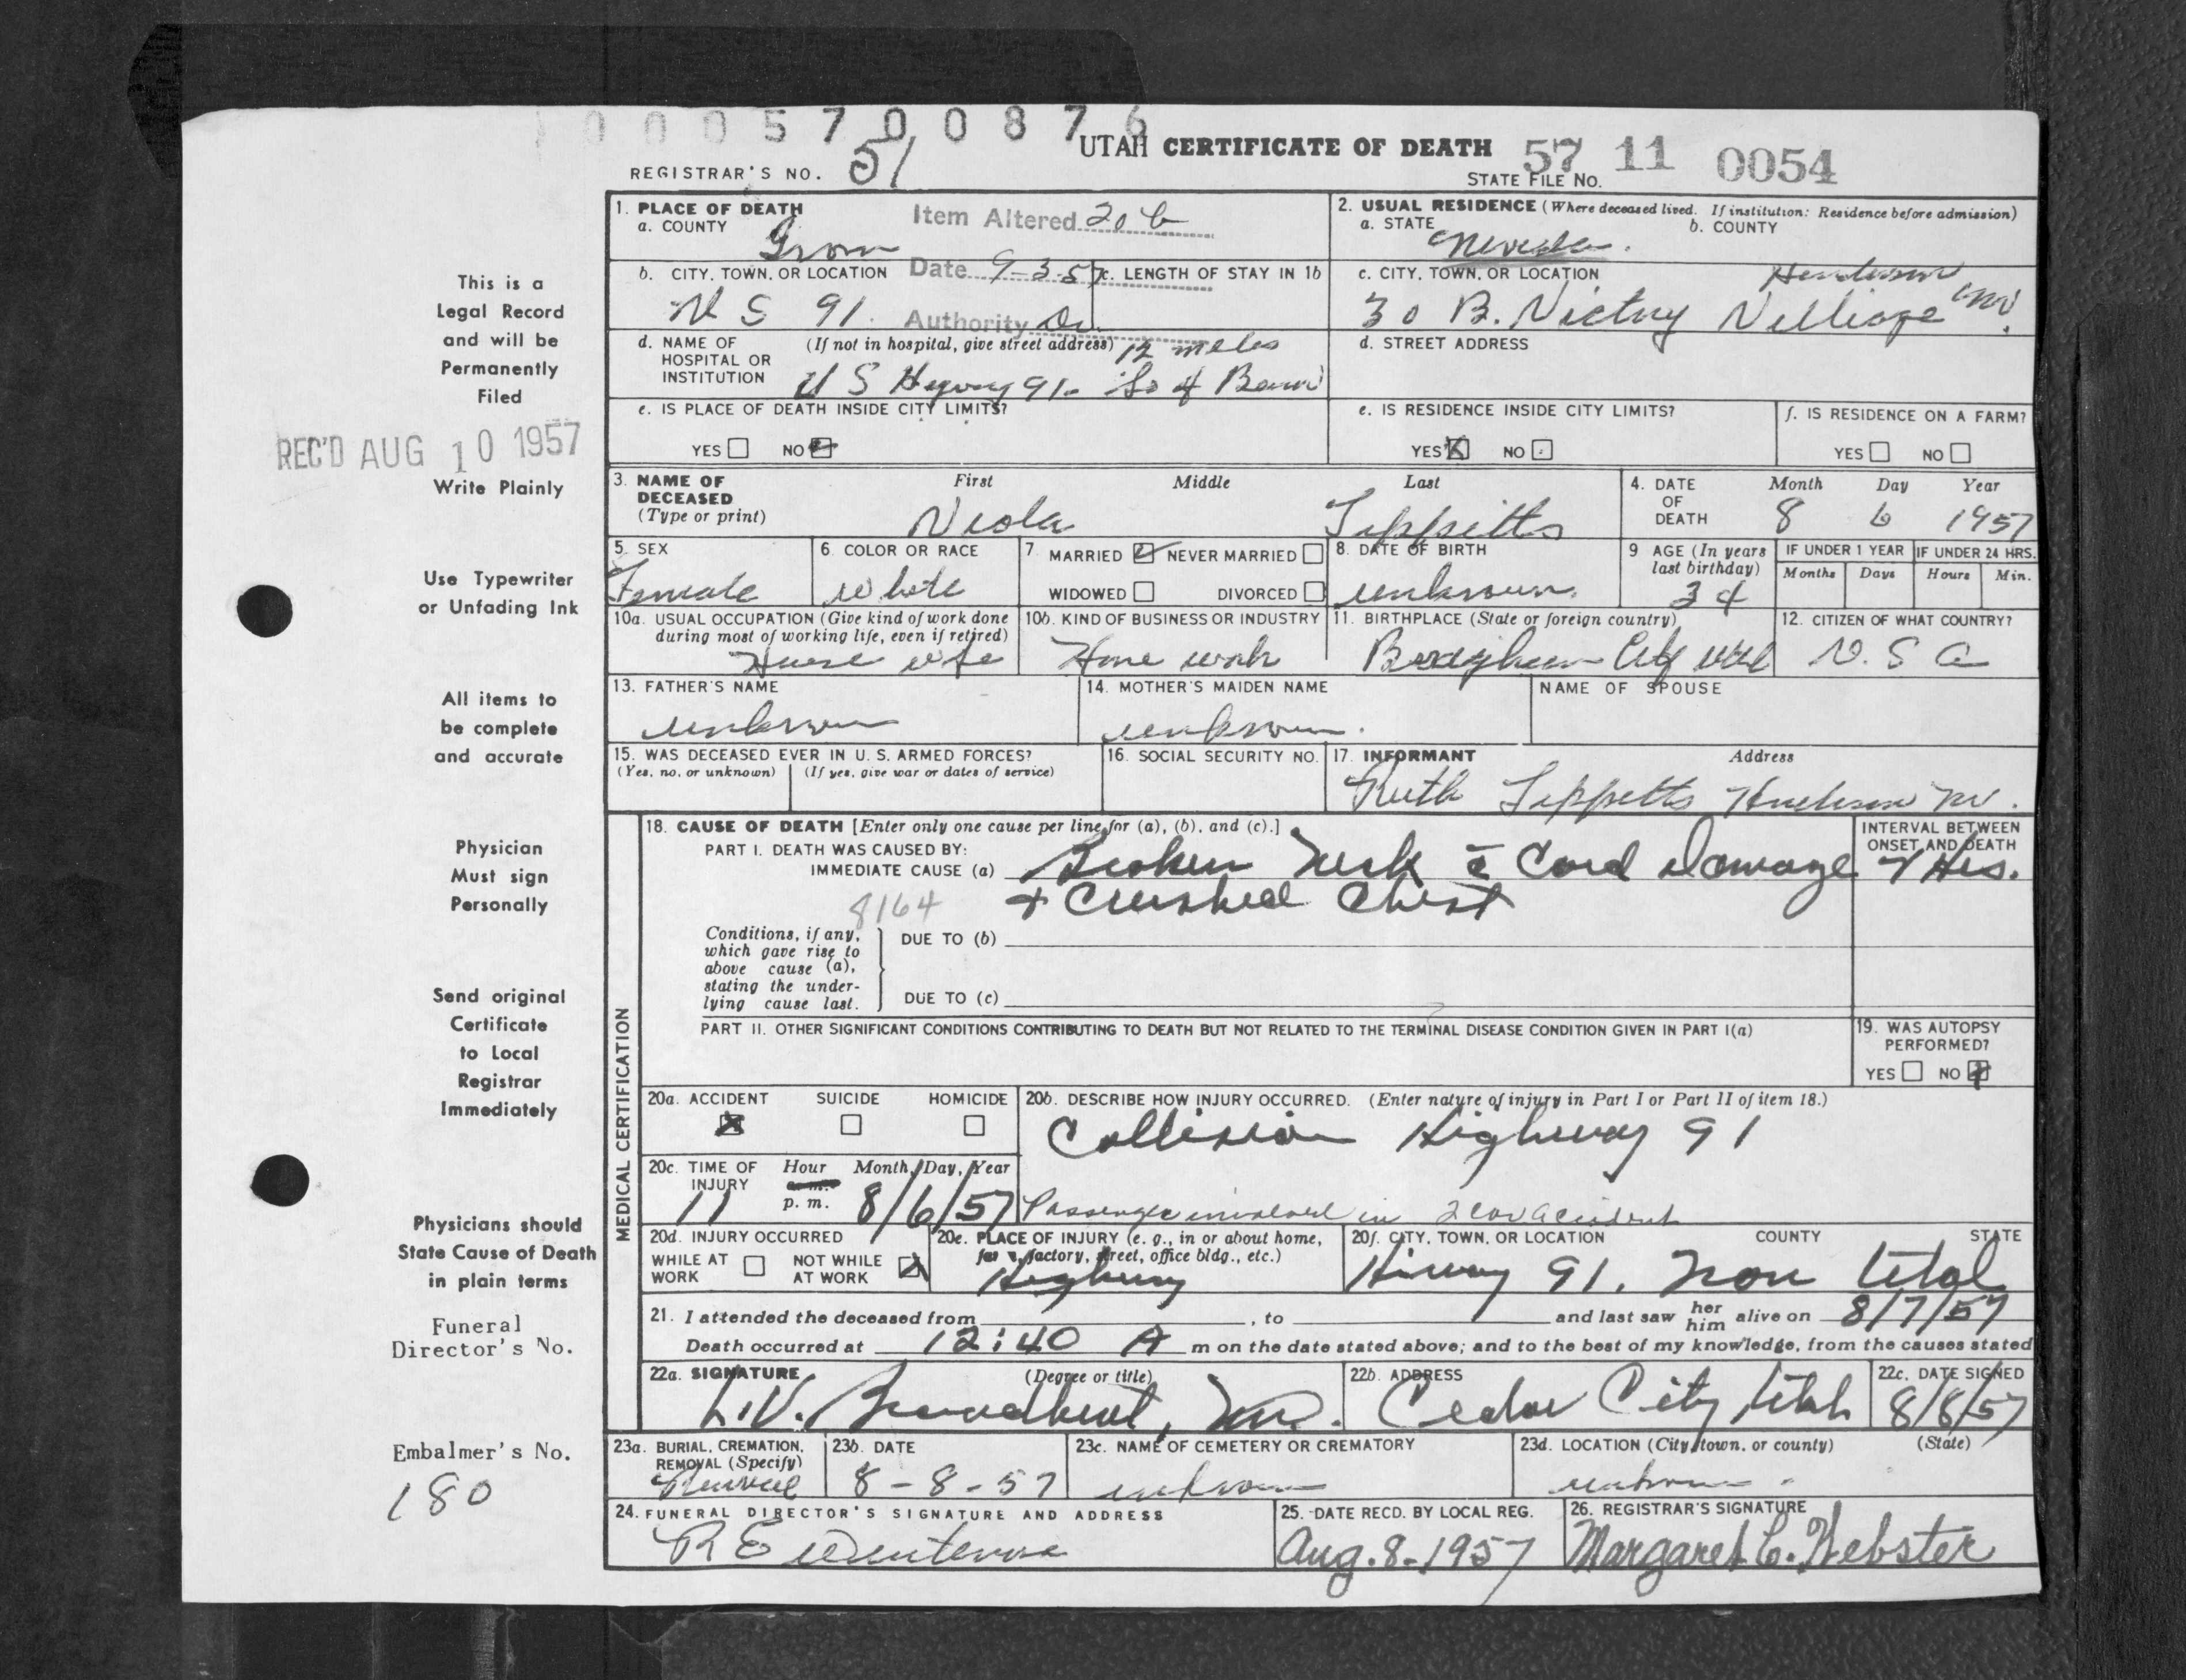 0005700876
UTAH CERTIFICATE OF DEATH 57 11 0054
REGISTRAR'S NO. 51
STATE FILE NO.
1. PLACE OF DEATH
a. COUNTY
Iron
Item Altered 20 b
2. USUAL RESIDENCE (Where deceased lived. If institution: Residence before admission)
a. STATE
b. COUNTY
Nevada.
b. CITY, TOWN, OR LOCATION
Date 9-3-57
c. LENGTH OF STAY IN 1b
U S 91.
Authority Dr.
c. CITY, TOWN, OR LOCATION
Henderson
30 B. Victory Villiage Nv.
d. NAME OF HOSPITAL OR INSTITUTION
(If not in hospital, give street address)
12 miles
U S Hyway 91- So of
d. STREET ADDRESS
e. IS PLACE OF DEATH INSIDE CITY LIMITS?
YES NO
e. IS RESIDENCE INSIDE CITY LIMITS?
YES X NO
f. IS RESIDENCE ON A FARM?
YES NO
This is a
Legal Record
and will be
Permanently
Filed
REC'D AUG 10 1957
Write Plainly
3. NAME OF DECEASED
(Type or print)
First Middle Last
Viola Tippetts
4. DATE OF DEATH
Month Day Year
8 6 1957
5. SEX
Female
6. COLOR OR RACE
White
7. MARRIED NEVER MARRIED
WIDOWED DIVORCED
8. DATE OF BIRTH
unknown.
9 AGE (In years last birthday)
34
IF UNDER 1 YEAR
Months Days
IF UNDER 24 HRS.
Hours Min.
Use Typewriter
or Unfading Ink
10a. USUAL OCCUPATION (Give kind of work done during most of working life, even if retired)
House wife
10b. KIND OF BUSINESS OR INDUSTRY
Home work
11. BIRTHPLACE (State or foreign country)
Brigham City Utah
12. CITIZEN OF WHAT COUNTRY?
U. S A
All items to
be complete
and accurate
13. FATHER'S NAME
unknown
14. MOTHER'S MAIDEN NAME
unknown.
NAME OF SPOUSE
15. WAS DECEASED EVER IN U. S. ARMED FORCES?
(Yes, no, or unknown) (If yes, give war or dates of service)
16. SOCIAL SECURITY NO.
17. INFORMANT Address
Ruth Tippetts Henderson Nv.
Physician
Must sign
Personally
MEDICAL CERTIFICATION
18. CAUSE OF DEATH [Enter only one cause per line for (a), (b), and (c).]
PART I. DEATH WAS CAUSED BY:
IMMEDIATE CAUSE (a) Broken Neck c̄ Cord Damage
& Crushed Chest
8164
INTERVAL BETWEEN ONSET AND DEATH
Hrs.
Conditions, if any, which gave rise to above cause (a), stating the underlying cause last.
DUE TO (b)
DUE TO (c)
Send original
Certificate
to Local
Registrar
Immediately
PART II. OTHER SIGNIFICANT CONDITIONS CONTRIBUTING TO DEATH BUT NOT RELATED TO THE TERMINAL DISEASE CONDITION GIVEN IN PART I(a)
19. WAS AUTOPSY PERFORMED?
YES NO
20a. ACCIDENT SUICIDE HOMICIDE
X
20b. DESCRIBE HOW INJURY OCCURRED. (Enter nature of injury in Part I or Part II of item 18.)
Collision Highway 91
Passenger involved in 2 car accident
20c. TIME OF INJURY
Hour Month, Day, Year
a. m.
p. m.
11 8/6/57
Physicians should
State Cause of Death
in plain terms
20d. INJURY OCCURRED
WHILE AT WORK NOT WHILE AT WORK
20e. PLACE OF INJURY (e. g., in or about home, farm, factory, street, office bldg., etc.)
Highway
20f. CITY, TOWN, OR LOCATION COUNTY STATE
Hiway 91. Iron Utah
21. I attended the deceased from , to and last saw her him alive on 8/7/57
Death occurred at 12:40 A m on the date stated above; and to the best of my knowledge, from the causes stated
Funeral
Director's No.
22a. SIGNATURE (Degree or title)
L.V. Broadbent, M.D.
22b. ADDRESS
Cedar City, Utah
22c. DATE SIGNED
8/8/57
Embalmer's No.
180
23a. BURIAL, CREMATION, REMOVAL (Specify)
Removal
23b. DATE
8-8-57
23c. NAME OF CEMETERY OR CREMATORY
unknown
23d. LOCATION (City, town, or county) (State)
unknown.
24. FUNERAL DIRECTOR'S SIGNATURE AND ADDRESS
25. DATE RECD. BY LOCAL REG.
Aug. 8-1957
26. REGISTRAR'S SIGNATURE
Margaret C. Webster